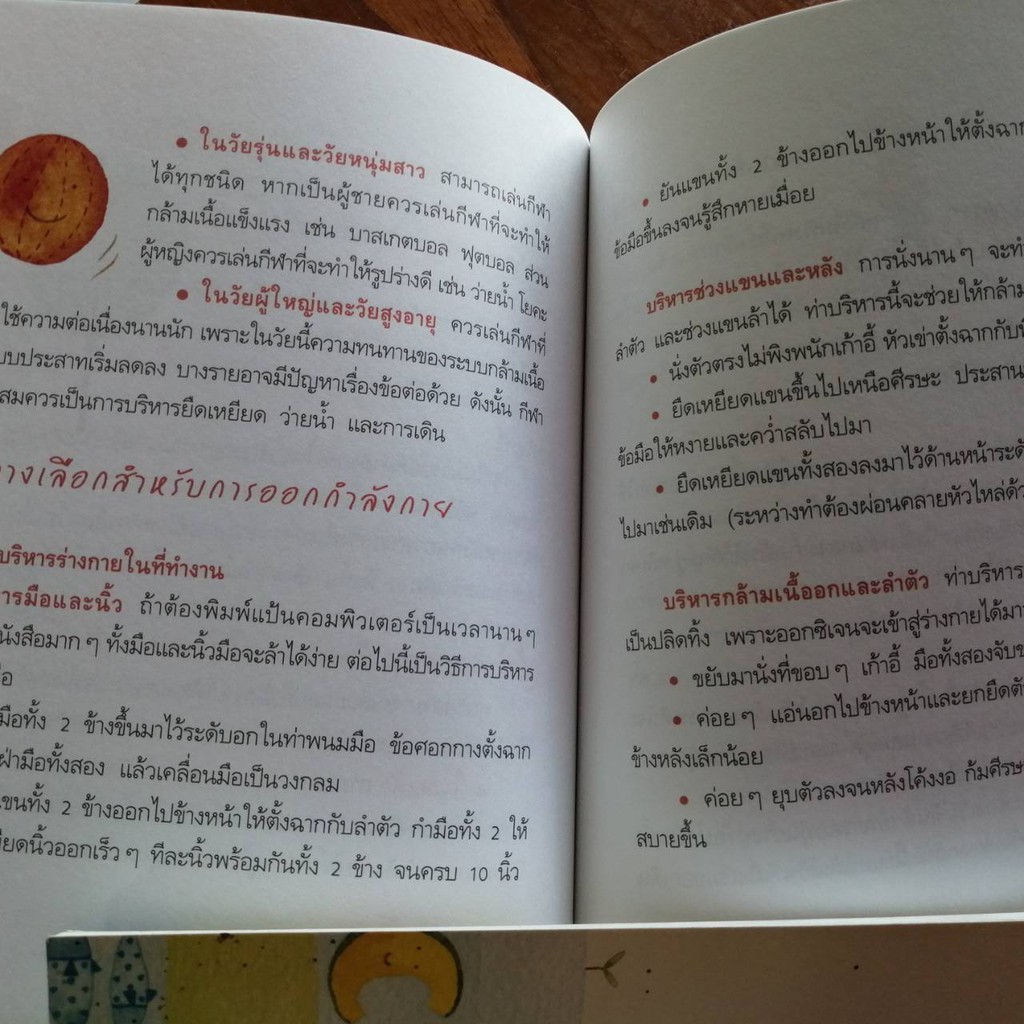 • ในวัยรุ่นและวัยหนุ่มสาว สามารถเล่นกีฬา
ได้ทุกชนิด หากเป็นผู้ชายควรเล่นกีฬาที่จะทำให้
กล้ามเนื้อแข็งแรง เช่น บาสเกตบอล ฟุตบอล ส่วน
ผู้หญิงควรเล่นกีฬาที่จะทำให้รูปร่างดี เช่น ว่ายน้ำ โยคะ
• ในวัยผู้ใหญ่และวัยสูงอายุ ควรเล่นกีฬาที่
ใช้ความต่อเนื่องนานนัก เพราะในวัยนี้ความทนทานของระบบกล้ามเนื้อ
บบประสาทเริ่มลดลง บางรายอาจมีปัญหาเรื่องข้อต่อด้วย ดังนั้น กีฬา
สมควรเป็นการบริหารยืดเหยียด ว่ายน้ำ และการเดิน
างเลือกสำหรับการออกกำลังกาย
บริหารร่างกายในที่ทำงาน
ารมือและนิ้ว ถ้าต้องพิมพ์แป้นคอมพิวเตอร์เป็นเวลานานๆ
นังสือมากๆ ทั้งมือและนิ้วมือจะล้าได้ง่าย ต่อไปนี้เป็นวิธีการบริหาร
ือ
มือทั้ง 2 ข้างขึ้นมาไว้ระดับอกในท่าพนมมือ ข้อศอกกางตั้งฉาก
ฝ่ามือทั้งสอง แล้วเคลื่อนมือเป็นวงกลม
แขนทั้ง 2 ข้างออกไปข้างหน้าให้ตั้งฉากกับลำตัว กำมือทั้ง 2 ให้
ียดนิ้วออกเร็วๆ ทีละนิ้วพร้อมกันทั้ง 2 ข้าง จนครบ 10 นิ้ว
• ยันแขนทั้ง 2 ข้างออกไปข้างหน้าให้ตั้งฉาก
ข้อมือขึ้นลงจนรู้สึกหายเมื่อย
บริหารช่วงแขนและหลัง การนั่งนานๆ จะทำ
ลำตัว และช่วงแขนล้าได้ ท่าบริหารนี้จะช่วยให้กล้าม
• นั่งตัวตรงไม่พิงพนักเก้าอี้ หัวเข่าตั้งฉากกับ
• ยืดเหยียดแขนขึ้นไปเหนือศีรษะ ประสาน
ข้อมือให้หงายและคว่ำสลับไปมา
• ยืดเหยียดแขนทั้งสองลงมาไว้ด้านหน้าระดั
ไปมาเช่นเดิม (ระหว่างทำต้องผ่อนคลายหัวไหล่ด้ว
บริหารกล้ามเนื้ออกและลำตัว ท่าบริหาร
เป็นปลิดทิ้ง เพราะออกซิเจนจะเข้าสู่ร่างกายได้มา
• ขยับมานั่งที่ขอบๆ เก้าอี้ มือทั้งสองจับข
• ค่อยๆ แอ่นอกไปข้างหน้าและยกยืดตั
ข้างหลังเล็กน้อย
• ค่อยๆ ยุบตัวลงจนหลังโค้งงอ ก้มศีรษ
สบายขึ้น